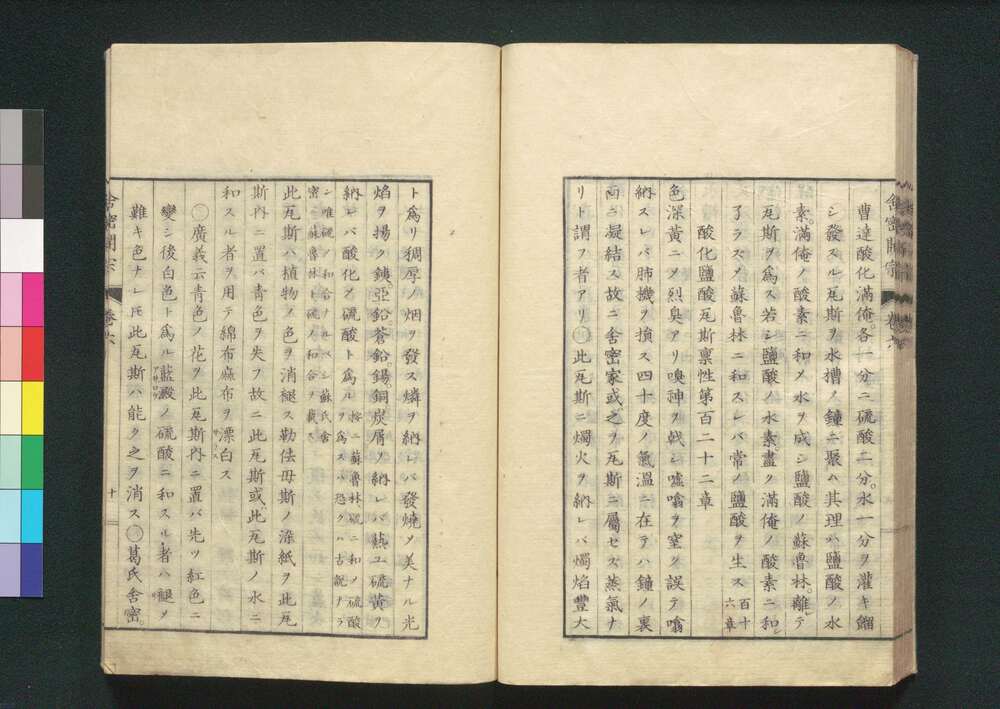 舎密開宗 巻六
曹達酸化満俺各一分ニ硫酸二分水一分ヲ灌キ餾
シ發スル瓦斯ヲ水槽ノ鐘ニ聚ム其理ハ鹽酸ノ水
素満俺ノ酸素ニ和メ水ヲ成シ鹽酸ノ蘇魯林離レテ
瓦斯ヲ為ス若シ鹽酸ノ水素盡ク満俺ノ酸素ニ和シ
了ラスメ蘇魯林ニ和スレバ常ノ鹽酸ヲ生ス 百十六章
酸化鹽酸瓦斯稟性第百二十二章
色深黄ニメ烈臭アリ嗅神ヲ戟シ嘘噏ヲ窒グ誤テ噏
納スレバ肺機ヲ損ス四十度ノ氣温ニ在テハ鐘ノ裏
面ニ凝結ス故ニ舎密家或之ヲ瓦斯ニ屬セズ蒸氣ナ
リト謂フ者アリ〇此瓦斯ニ燭火ヲ納レバ燭焔豐大
ト為リ稠厚ノ烟ヲ發ス燐ヲ納レバ發燒メ美ナル光
焔ヲ揚ク銕亞鉛蒼鉛錫銅炭屑ヲ納レバ熱ユ硫黄ヲ
納レバ酸化メ硫酸ト為ル 按ニ蘇魯林硫ニ和メ硫酸ヲ為スハ恐クハ古説ナラ
ン唯硫ノ和合ナルベシ蘇氏舎密ニ蘇魯林ト硫ノ和合ヲ載ス
此瓦斯ハ植物ノ色ヲ消褪ス勒佉母斯ノ染紙ヲ此瓦
斯内ニ置バ青色ヲ失フ故ニ此瓦斯或此瓦斯ノ水ニ
和スル者ヲ用テ綿布麻布ヲ漂白ス
〇廣義云青色ノ花ヲ此瓦斯内ニ置バ先ツ紅色ニ
變シ後白色ト為ル藍殿ノ硫酸ニ和スル者ハ褪ヲ
難キ色ナレ𪜈此瓦斯ハ能ク之ヲ消ス〇葛氏舎密
舎密開宗 巻六 十